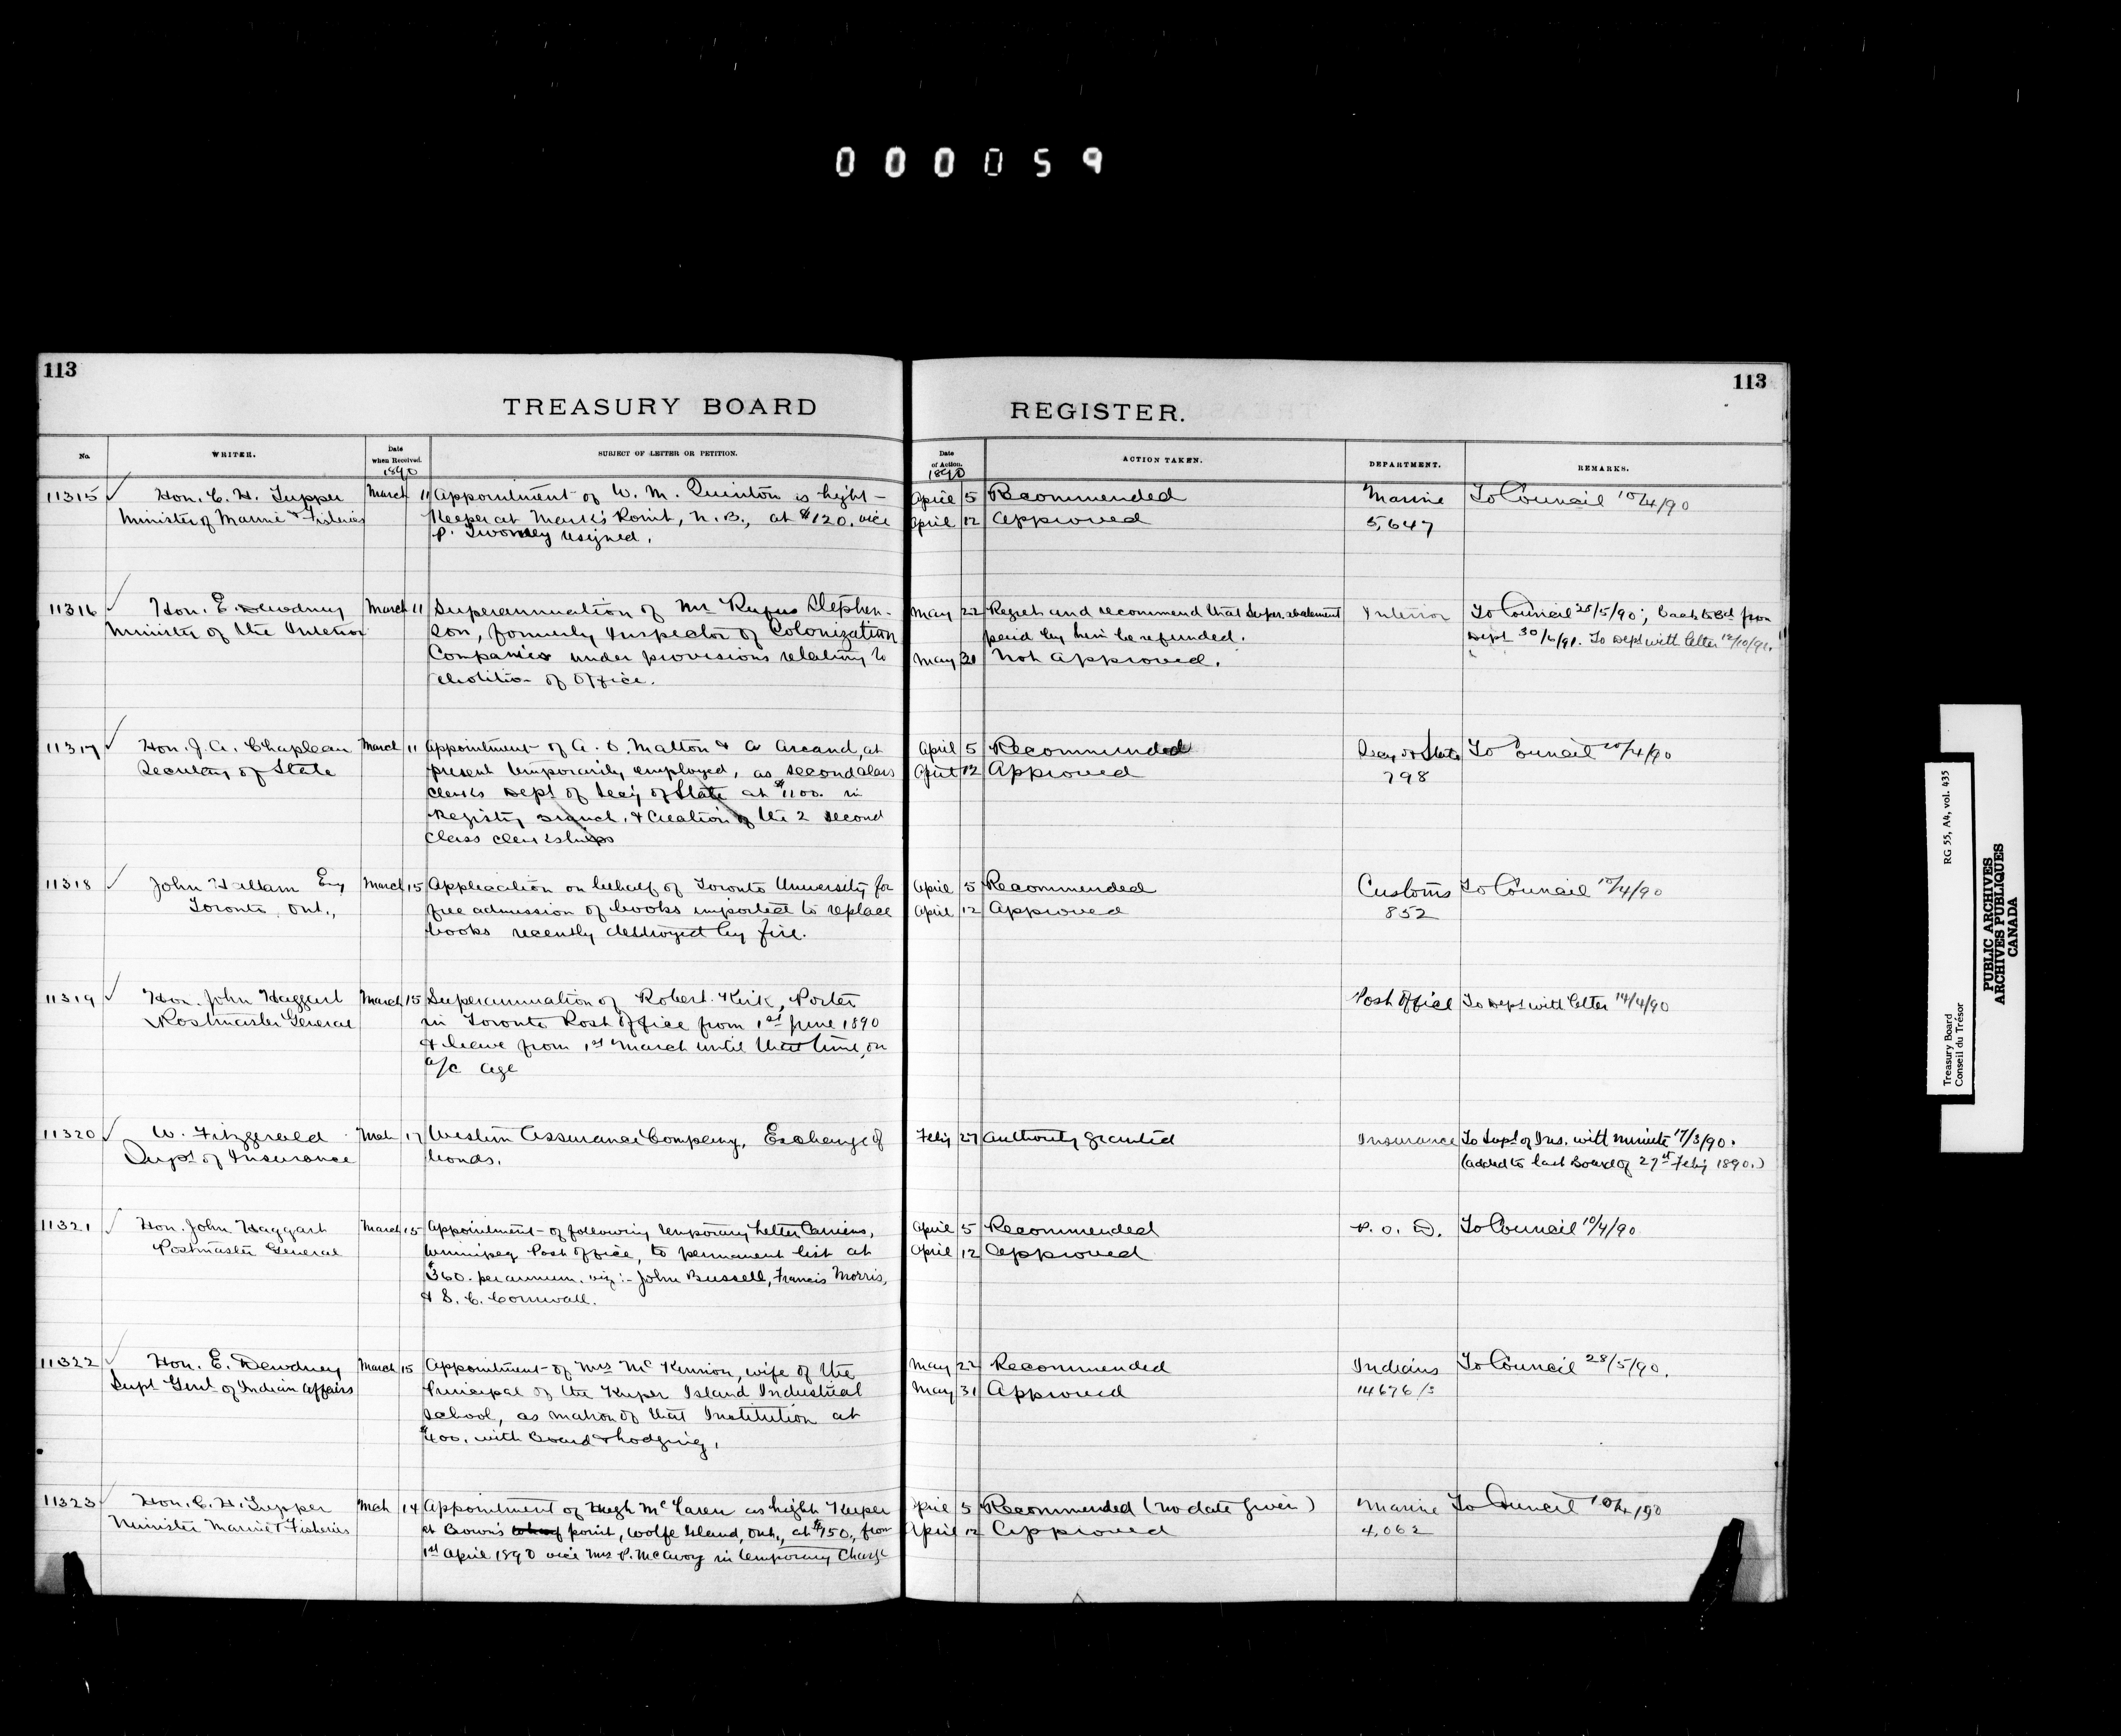 000059
113
113
TREASURY BOARD
REGISTER.
No.
WRITER.
Date when Received.
1890
SUBJECT OF LETTER OR PETITION.
Date of Action.
1890
ACTION TAKEN.
DEPARTMENT.
REMARKS.
11315 ✓
Hon. C. H. Tupper
Minister of Marine & Fisheries
March 11
Appointment of W. M. Quinton as Light-
Keeper at Mark's Point, N. B., at $120. vice
P. resigned.
April 5 Recommended
April 12 Approved
Marine
5,647
To Council 10/4/90
11316 ✓
Hon. E. Dewdney
Minister of the Interior
March 11
Superannuation of Mr Rufus Stephen-
son, formerly Inspector of Colonization
Companies under provisions relating to
abolition of Office.
May 22 Regret and recommend that Super. abatement
paid by him be refunded.
May Not Approved.
Interior
To Council 28/5/90; back to Bd from
Dept 30/6/91. To Dept with letter 12/10/91.
11317 ✓
Hon. J. A. Chapleau
Secretary of State
March 11
Appointment of A. O. Malton & A Arcand, at
present temporarily employed, as second class
clerks Dept of Secy of State at $1100. in
Registry Branch, & Creation of the 2 second
class clerkships
April 5 Recommended
April 12 Approved
Secy of State
798
To Council 10/4/90
11318 ✓
John Hallam Esq
Toronto, Ont.,
March 15
Application on behalf of Toronto University for
free admission of books imported to replace
books recently destroyed by fire.
April 5 Recommended
April 12 Approved
Customs
852
To Council 10/4/90
11319 ✓
Hon. John Haggart
Postmaster General
March 15
Superannuation of Robert Kirk, Porter
in Toronto Post Office from 1st June 1890
& leave from 1st March until that time, on
a/c age
Post Office
To Dept with letter 14/4/90
11320 ✓
W. Fitzgerald
Supt of Insurance
Mch 17
Western Assurance Company, Exchange of
bonds.
Feby 27 Authority granted
Insurance
To Supt of Ins. with minute 17/3/90.
(added to last Board of 27th Feby 1890.)
11321 ✓
Hon. John Haggart
Postmaster General
March 15
Appointment of following temporary Letter Carriers,
Winnipeg Post Office, to permanent list at
$360. per annum. viz:- John Bussell, Francis Morris,
& S. C. Cornwall.
April 5 Recommended
April 12 Approved
P. O. D.
To Council 10/4/90
11322 ✓
Hon. E. Dewdney
Supt Genl of Indian Affairs
March 15
Appointment of Mrs McKinnon, wife of the
Principal of the Kuper Island Industrial
School, as matron of that Institution at
$400. with Board & Lodging.
May 22 Recommended
May 31 Approved
Indians
14676/3
To Council 28/5/90.
11323 ✓
Hon. C. H. Tupper
Minister Marine & Fisheries
Mch 14
Appointment of Hugh McLaren as Light Keeper
at Brown's point, Wolfe Island, Ont., at $150., from
1st April 1890 vice Mrs P. McAvoy in temporary Charge
April 5 Recommended (no date given)
April 12 Approved
Marine
4,062
To Council 10/4/90
Treasury Board
Conseil du Trésor
RG 55, A4, vol. 435
PUBLIC ARCHIVES
ARCHIVES PUBLIQUES
CANADA